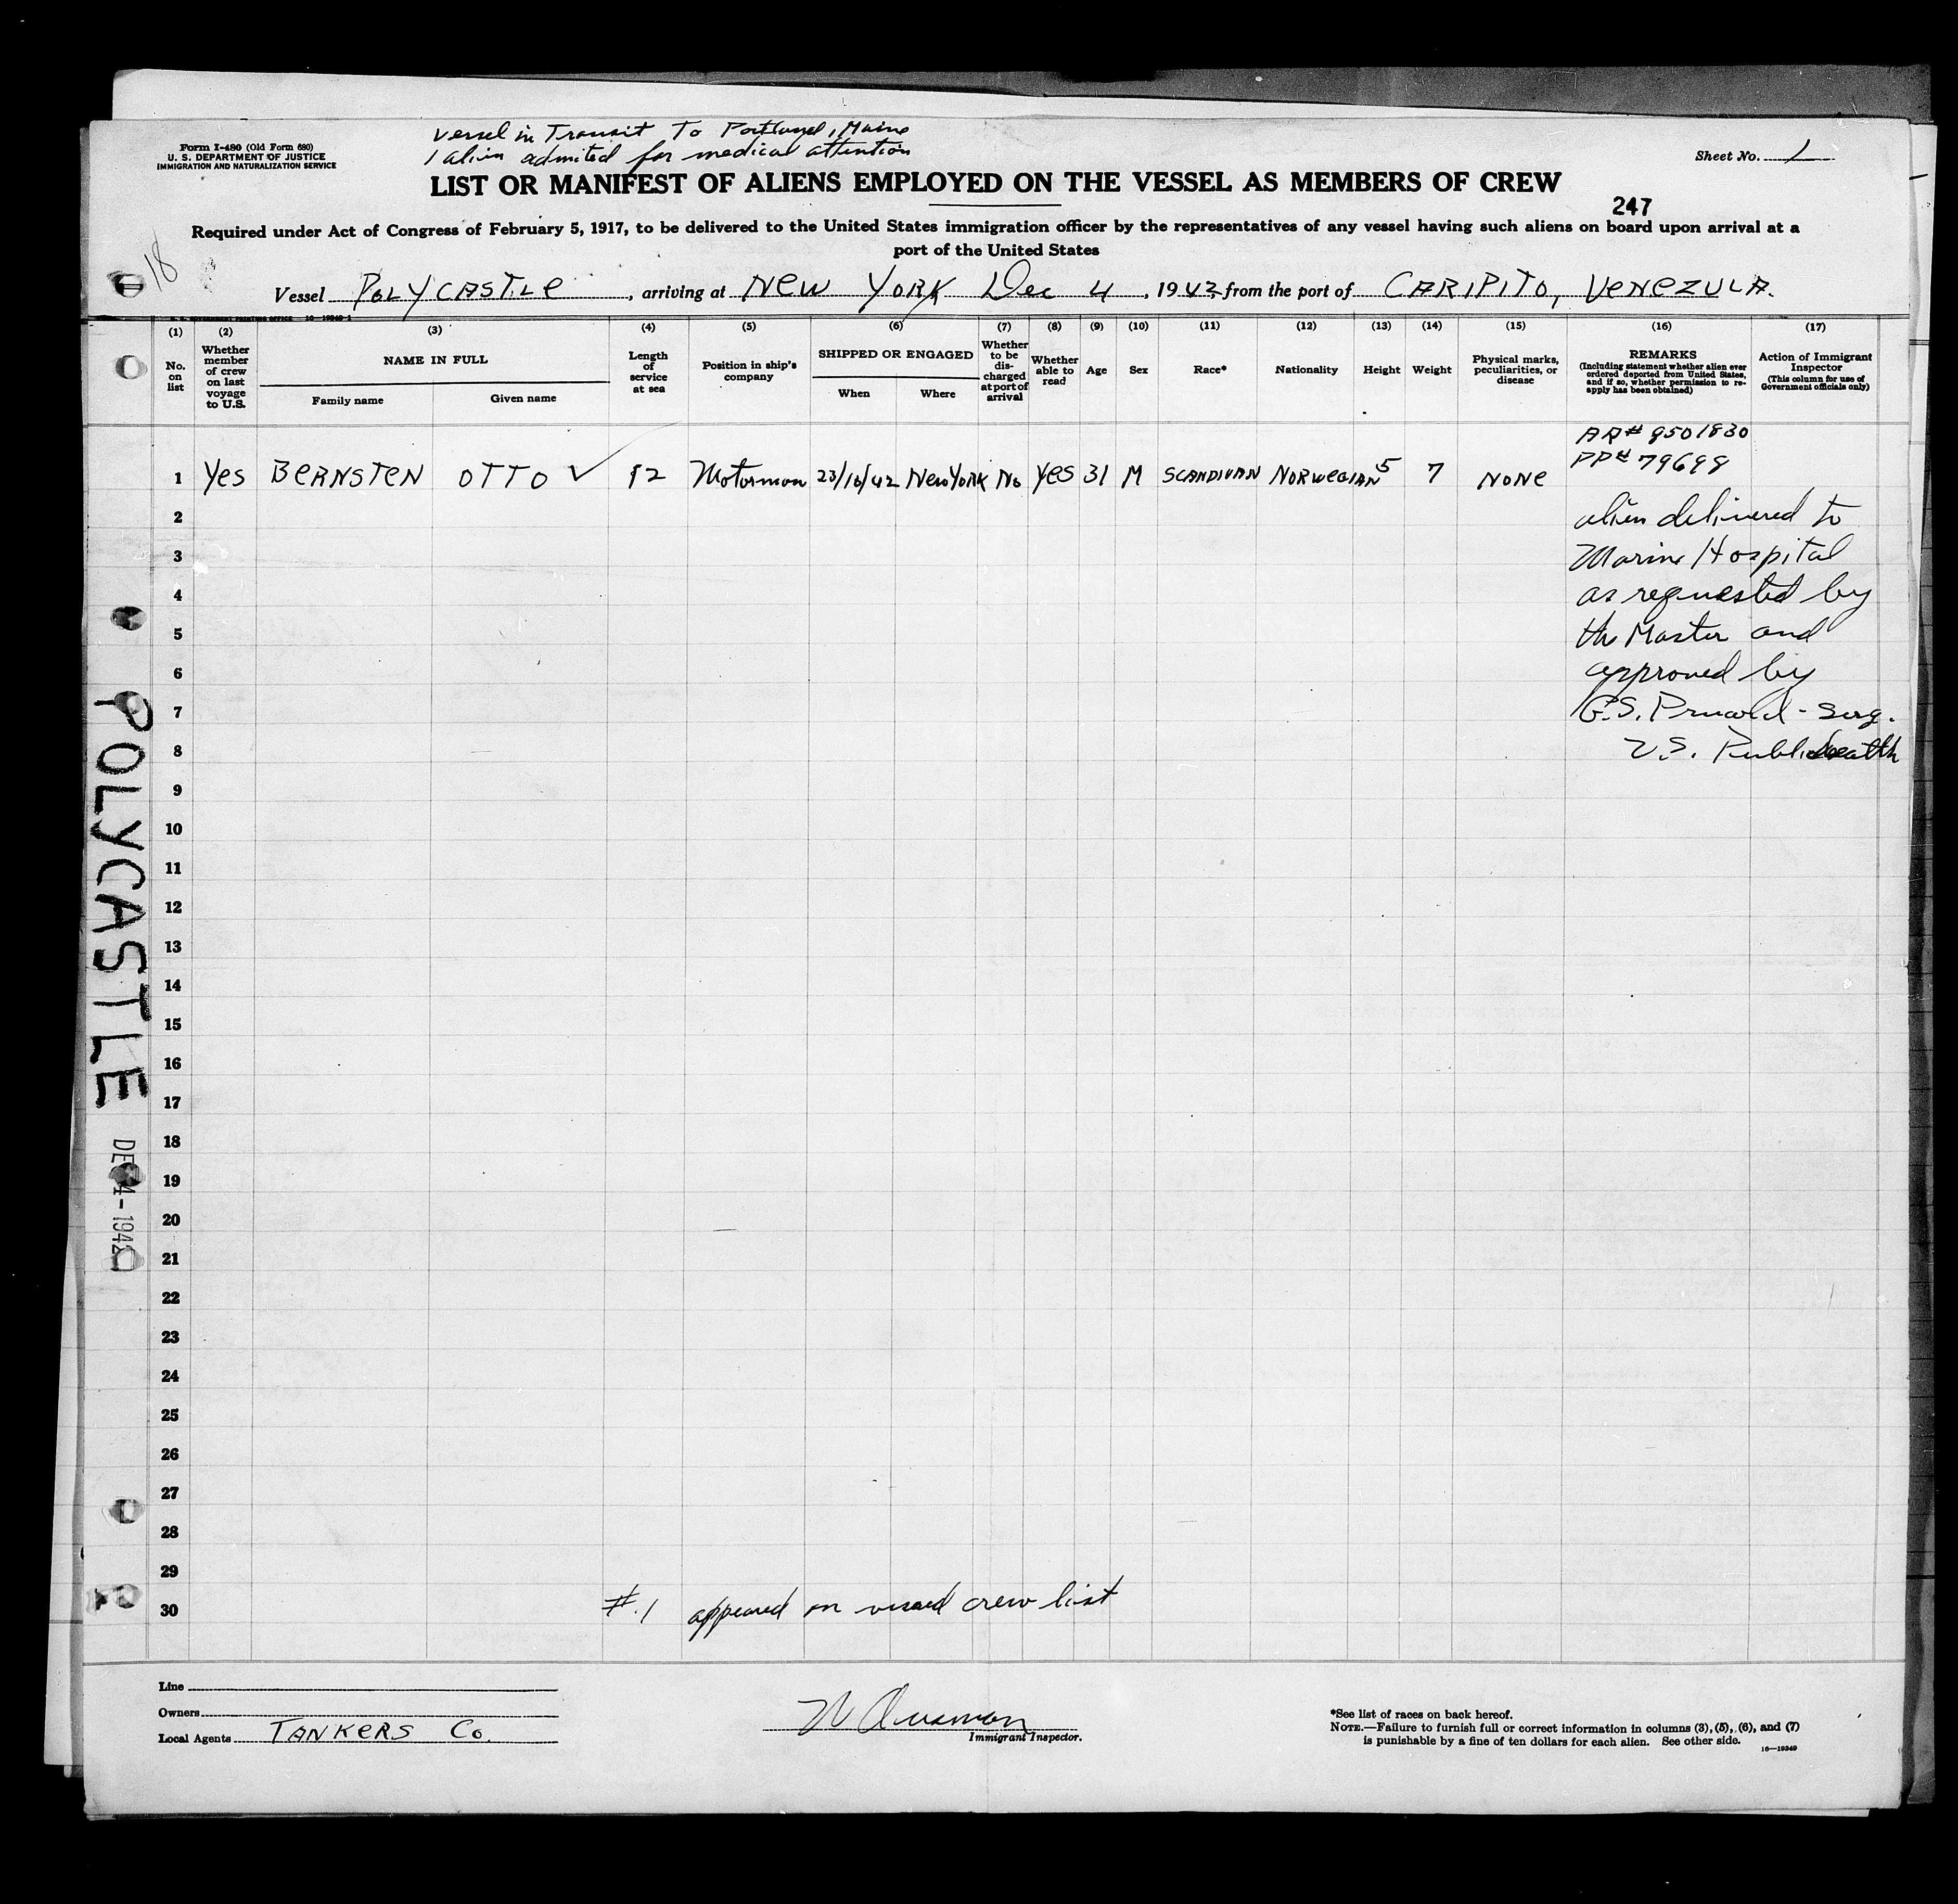 Form I-480 (Old Form 680)
U. S. DEPARTMENT OF JUSTICE
IMMIGRATION AND NATURALIZATION SERVICE
Vessel in Transit To Portland, Maine
1 alien admited for medical attention
Sheet No. 1
LIST OR MANIFEST OF ALIENS EMPLOYED ON THE VESSEL AS MEMBERS OF CREW
247
Required under Act of Congress of February 5, 1917, to be delivered to the United States immigration officer by the representatives of any vessel having such aliens on board upon arrival at a
port of the United States
18
Vessel POLYCASTLE, arriving at NEW YORK Dec 4, 1942, from the port of CARIPITO, VENEZULA.
(1) (2) (3) (4) (5) (6) (7) (8) (9) (10) (11) (12) (13) (14) (15) (16) (17)
No. on list
Whether member of crew on last voyage to U.S.
NAME IN FULL
Family name
Given name
Length of service at sea
Position in ship's company
SHIPPED OR ENGAGED
When
Where
Whether to be discharged at port of arrival
Whether able to read
Age
Sex
Race*
Nationality
Height
Weight
Physical marks, peculiarities, or disease
REMARKS
(Including statement whether alien ever ordered deported from United States, and if so, whether permission to reapply has been obtained)
Action of Immigrant Inspector
(This column for use of Government officials only)
AR# 9501830
PP# 79698
1 Yes BERNSTEN OTTO ✓ 12 Motorman 23/10/42 New York No Yes 31 M SCANDIVAN NORWEGIAN 5 7 NONE
2 alien delivered to
3 Marine Hospital
4 as requested by
5 the Master and
6 approved by
7 G.S. - Surg.
8 U.S. Public Health
9
10
11
12
13
14
15
16
17
18
19
20
21
22
23
24
25
26
27
28
29
30 #1 appeared on visaed crew list
POLYCASTLE
DEC 4 - 1942
Line
Owners
Local Agents TANKERS Co.
Immigrant Inspector.
*See list of races on back hereof.
NOTE.—Failure to furnish full or correct information in columns (3), (5), (6), and (7)
is punishable by a fine of ten dollars for each alien. See other side.
16—19349